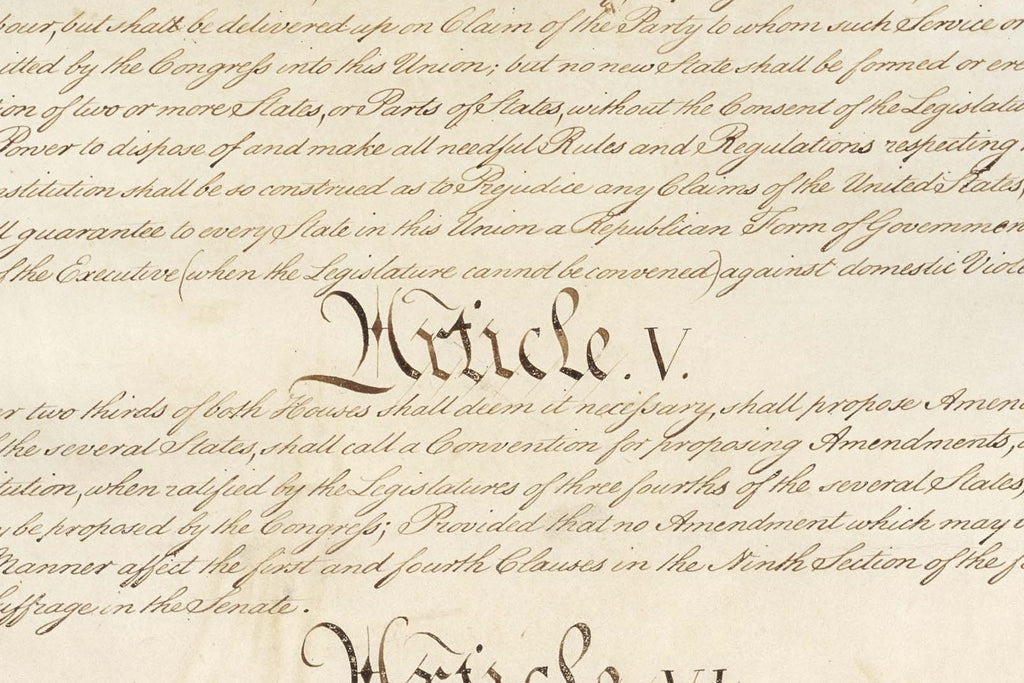 bour, but shall be delivered up on Claim of the Party to whom such Service or
itted by the Congress into this Union; but no new State shall be formed or ere
tion of two or more States, or Parts of States, without the Consent of the Legislatu
Power to dispose of and make all needful Rules and Regulations respecting
nstitution shall be so construed as to Prejudice any Claims of the United States,
ll guarantee to every State in this Union a Republican Form of Governmen
f the Executive (when the Legislature cannot be convened) against domestic Viole
Article. V.
er two thirds of both Houses shall deem it necessary, shall propose Amend
f the several States, shall call a Convention for proposing Amendments,
titution, when ratified by the Legislatures of three fourths of the several States,
y be proposed by the Congress; Provided that no Amendment which may
Manner affect the first and fourth Clauses in the Ninth Section of the
Suffrage in the Senate.
Article. VI.